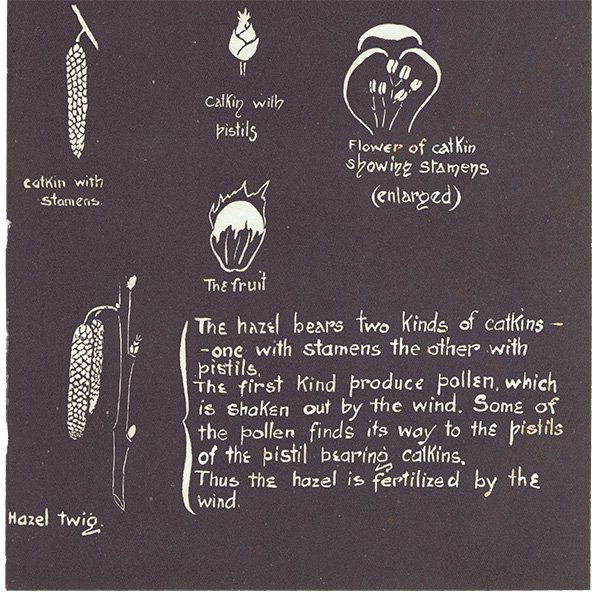 catkin with
stamens.
Catkin with
pistils
Flower of catkin
showing stamens
(enlarged)
The fruit
Hazel twig.
The hazel bears two kinds of catkins –
-one with stamens the other with
pistils.
The first kind produce pollen, which
is shaken out by the wind. Some of
the pollen finds its way to the pistils
of the pistil bearing catkins.
Thus the hazel is fertilized by the
wind.